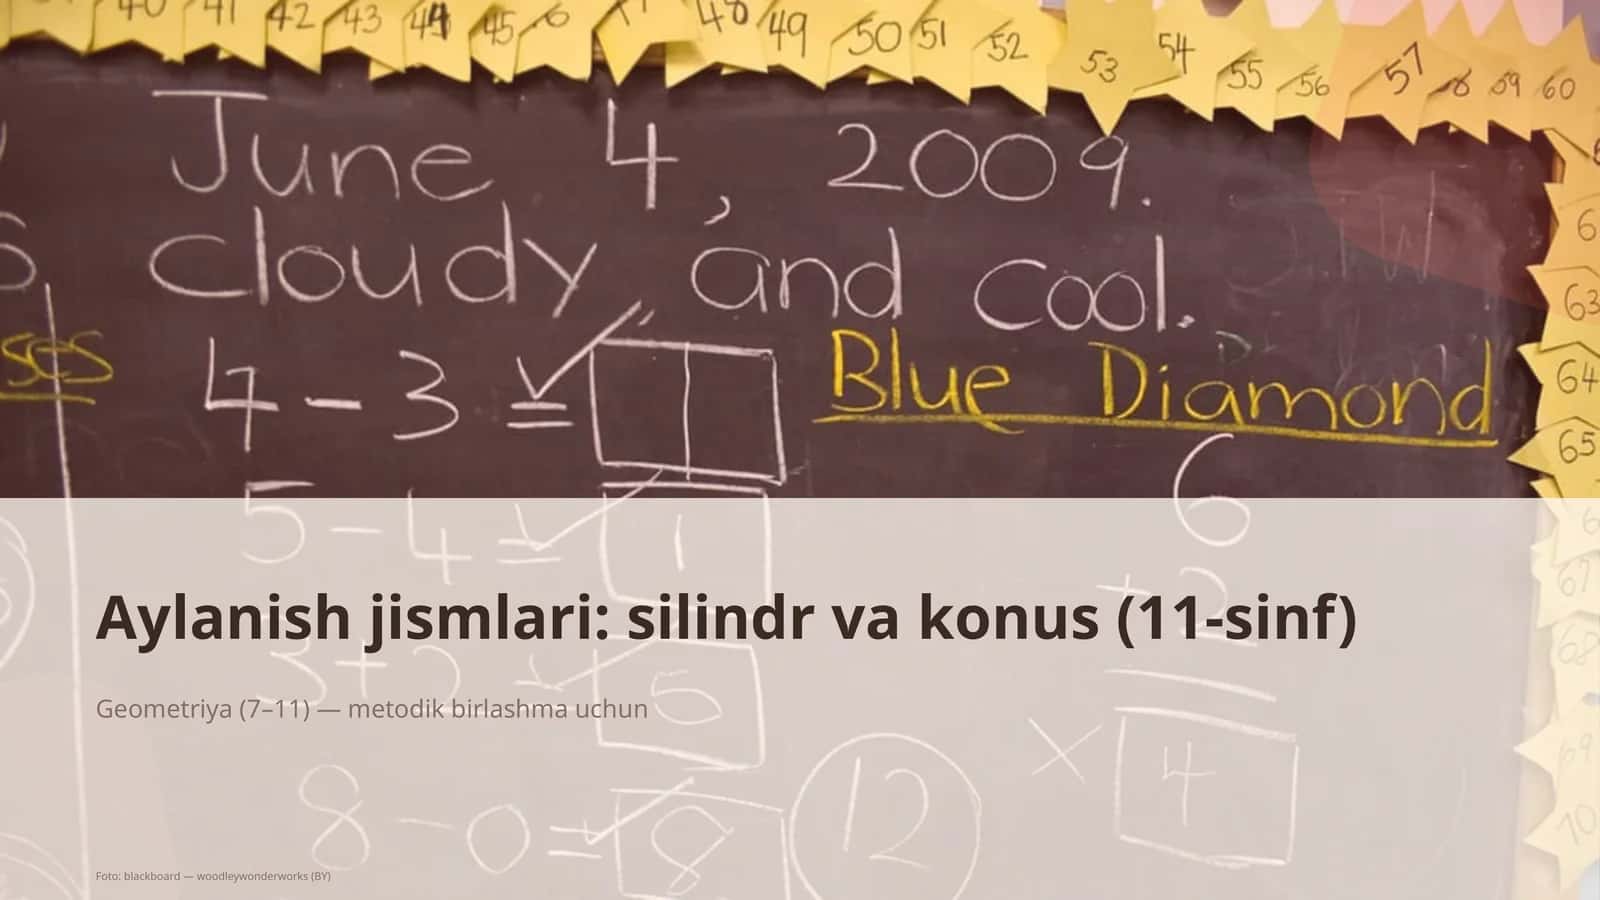 40 41 42 43 44 45 48 49 50 51 52 53 54 55 56 57 58 59 60
June 4, 2009.
cloudy, and cool.
63
ses
4 - 3 =
Blue Diamond
64
65
6
5 - 4 = 1
67
+ 2
Aylanish jismlari: silindr va konus (11-sinf)
68
Geometriya (7–11) — metodik birlashma uchun
69
× 4
8 - 0 = 8
12
70
Foto: blackboard — woodleywonderworks (BY)